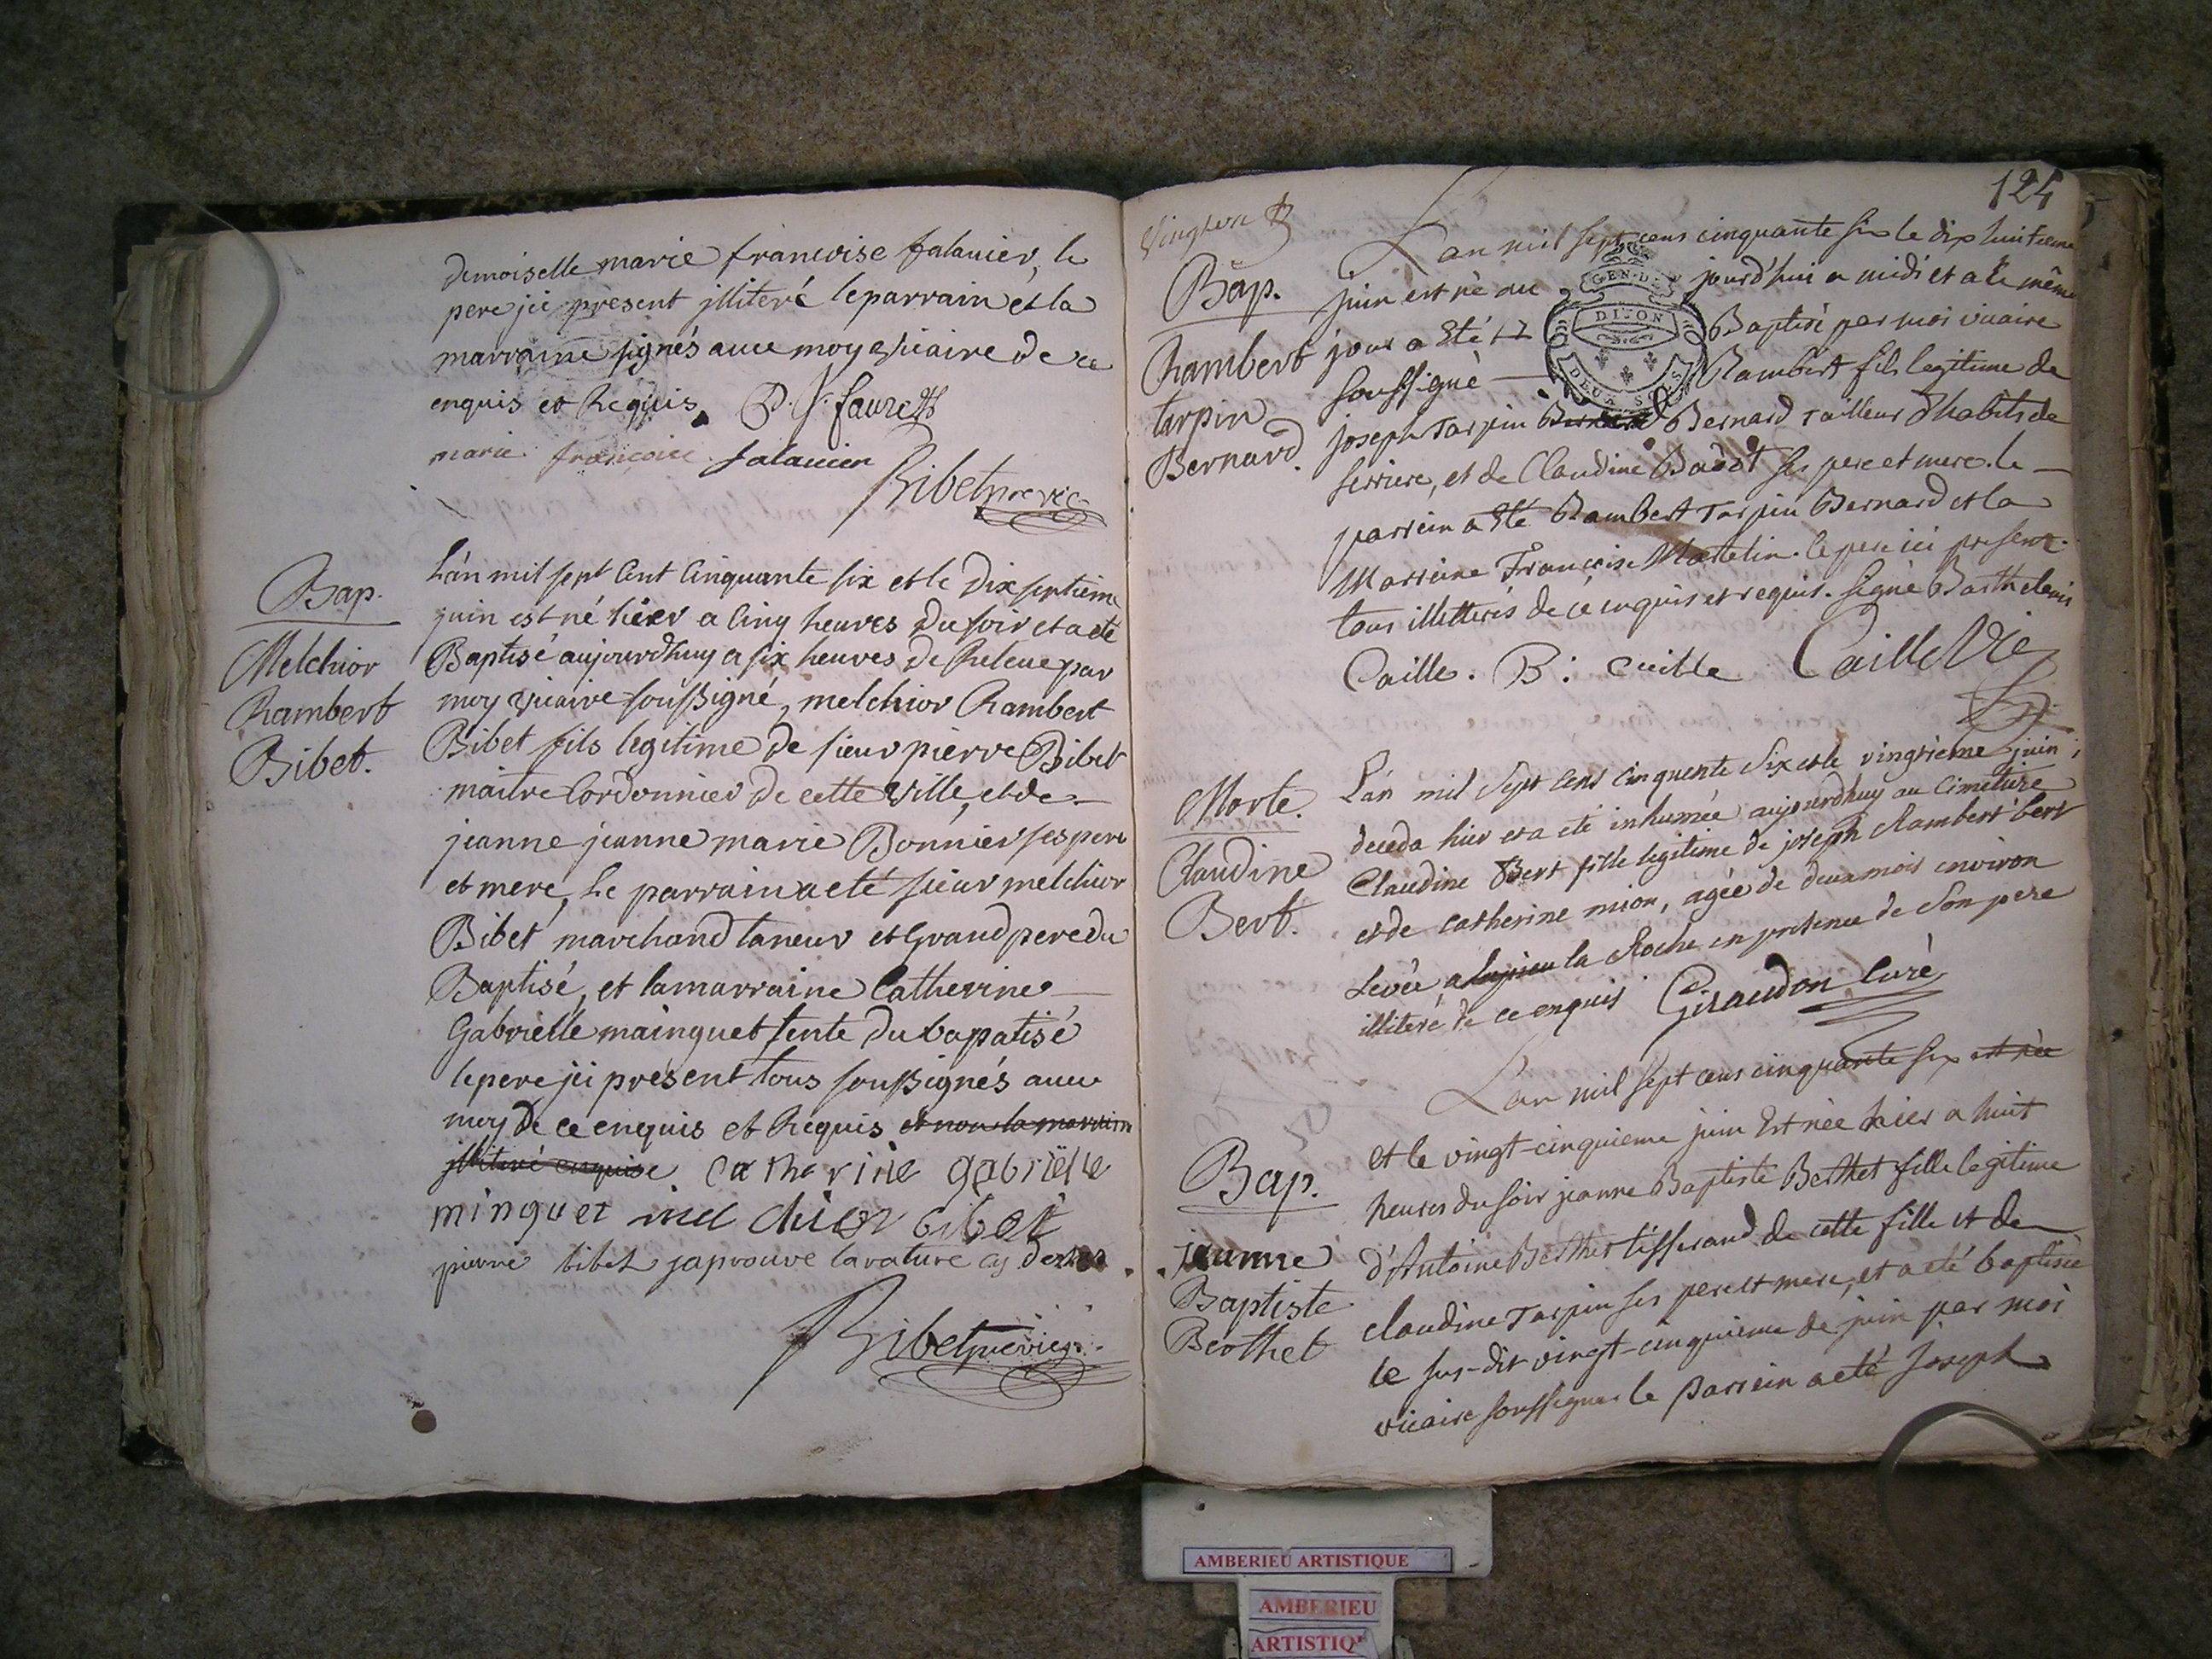 demoiselle marie francoise falavier, le
pere jci present jlliteré le parrain et la
marraine signés avec moy vicaire de ce
enquis et Requis. P. J. faure
marie françoise falavier
Ribet
Bap.
Melchior
Rambert
Bibet.
L'an mil sept Cent Cinquante six et le Dix septieme
juin est né hier a Cinq heures Du soir et a eté
Baptisé aujourdhuy a six heures de Releveé par
moy vicaire soussigné, melchior Rambert
Bibet fils legitime de sieur pierre Bibet
maitre Cordonnier de cette ville, et de
jeanne jeanne marie Bonnier ses pere
et mere, Le parrain a eté sieur melchior
Bibet marchand taneur et Grand pere du
Baptisé, et la marraine Catherine
Gabrielle mainguet tente du bapatisé
le pere jci présent tous soussignés avec
moy de ce enquis et Requis et non la marraine
jlliteré enquise catherine gabrielle
minguet melchior bibet
pierre bibet japrouve la rature cy
Ribet
124
Bap.
Rambert
tarpin
Bernard.
L'an mil sept cens cinquante six le dix huitieme
juin est né au jourd'hui a midi et a le même
jour a Eté Baptisé par moi vicaire
soussigné Rambert fils legitime de
joseph Tarpin Bernard Bernard tailleur d'habits de
ferriere, et de Claudine Badot ses pere et mere. le
parrein a Eté Rambert Tarpin Bernard et la
Marreine Françoise Martelin. le pere ici present
tous illetterés de ce enquis et requis. signé Barthelemi
Caille. B: caille Caille Vic
GEN. DE
DIJON
DEUX SOLS
Morte.
Claudine
Bert.
L'an mil sept cens cinquente six et le vingtieme juin
deceda hier et a eté inhumée aujourdhuy au Cimetiere
Claudine Bert fille legitime de joseph Rambert bert
et de catherine mion, agée de deux mois environ
Levée a la Roche en presence de son pere
illiteré de ce enquis Giraudon Curé
Bap.
jeanne
Baptiste
Berthet
L'an mil sept cens cinquante six est née
et le vingt-cinquieme juin Est née hier a huit
heures du soir jeanne Baptiste Berthet fille legitime
d'Antoine Berthet tisserand de cette fille et de
claudine Tarpin ses pere et mere, et a eté baptisée
le sus-dit vingt-cinquieme de juin par moi
vicaire soussigné le Parrein a eté Joseph
AMBERIEU ARTISTIQUE
AMBERIEU
ARTISTIQ